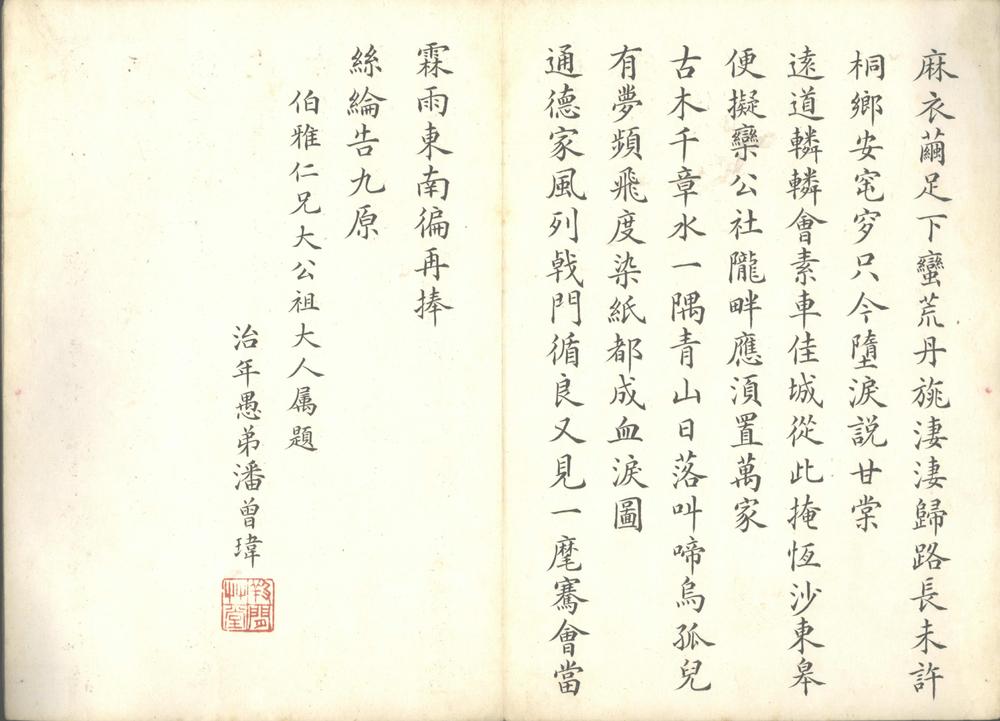 麻衣繭足下蠻荒丹旐淒淒歸路長未許
桐鄉安窀穸只今墮淚説甘棠
遠道轔轔會素車佳城從此掩恆沙東皋
便擬欒公社隴畔應須置萬家
古木千章水一隅青山日落叫啼烏孤兒
有夢頻飛度染紙都成血淚圖
通德家風列戟門循良又見一麾騫會當
霖雨東南徧再捧
絲綸告九原
伯雅仁兄大公祖大人属題
治年愚弟潘曾瑋